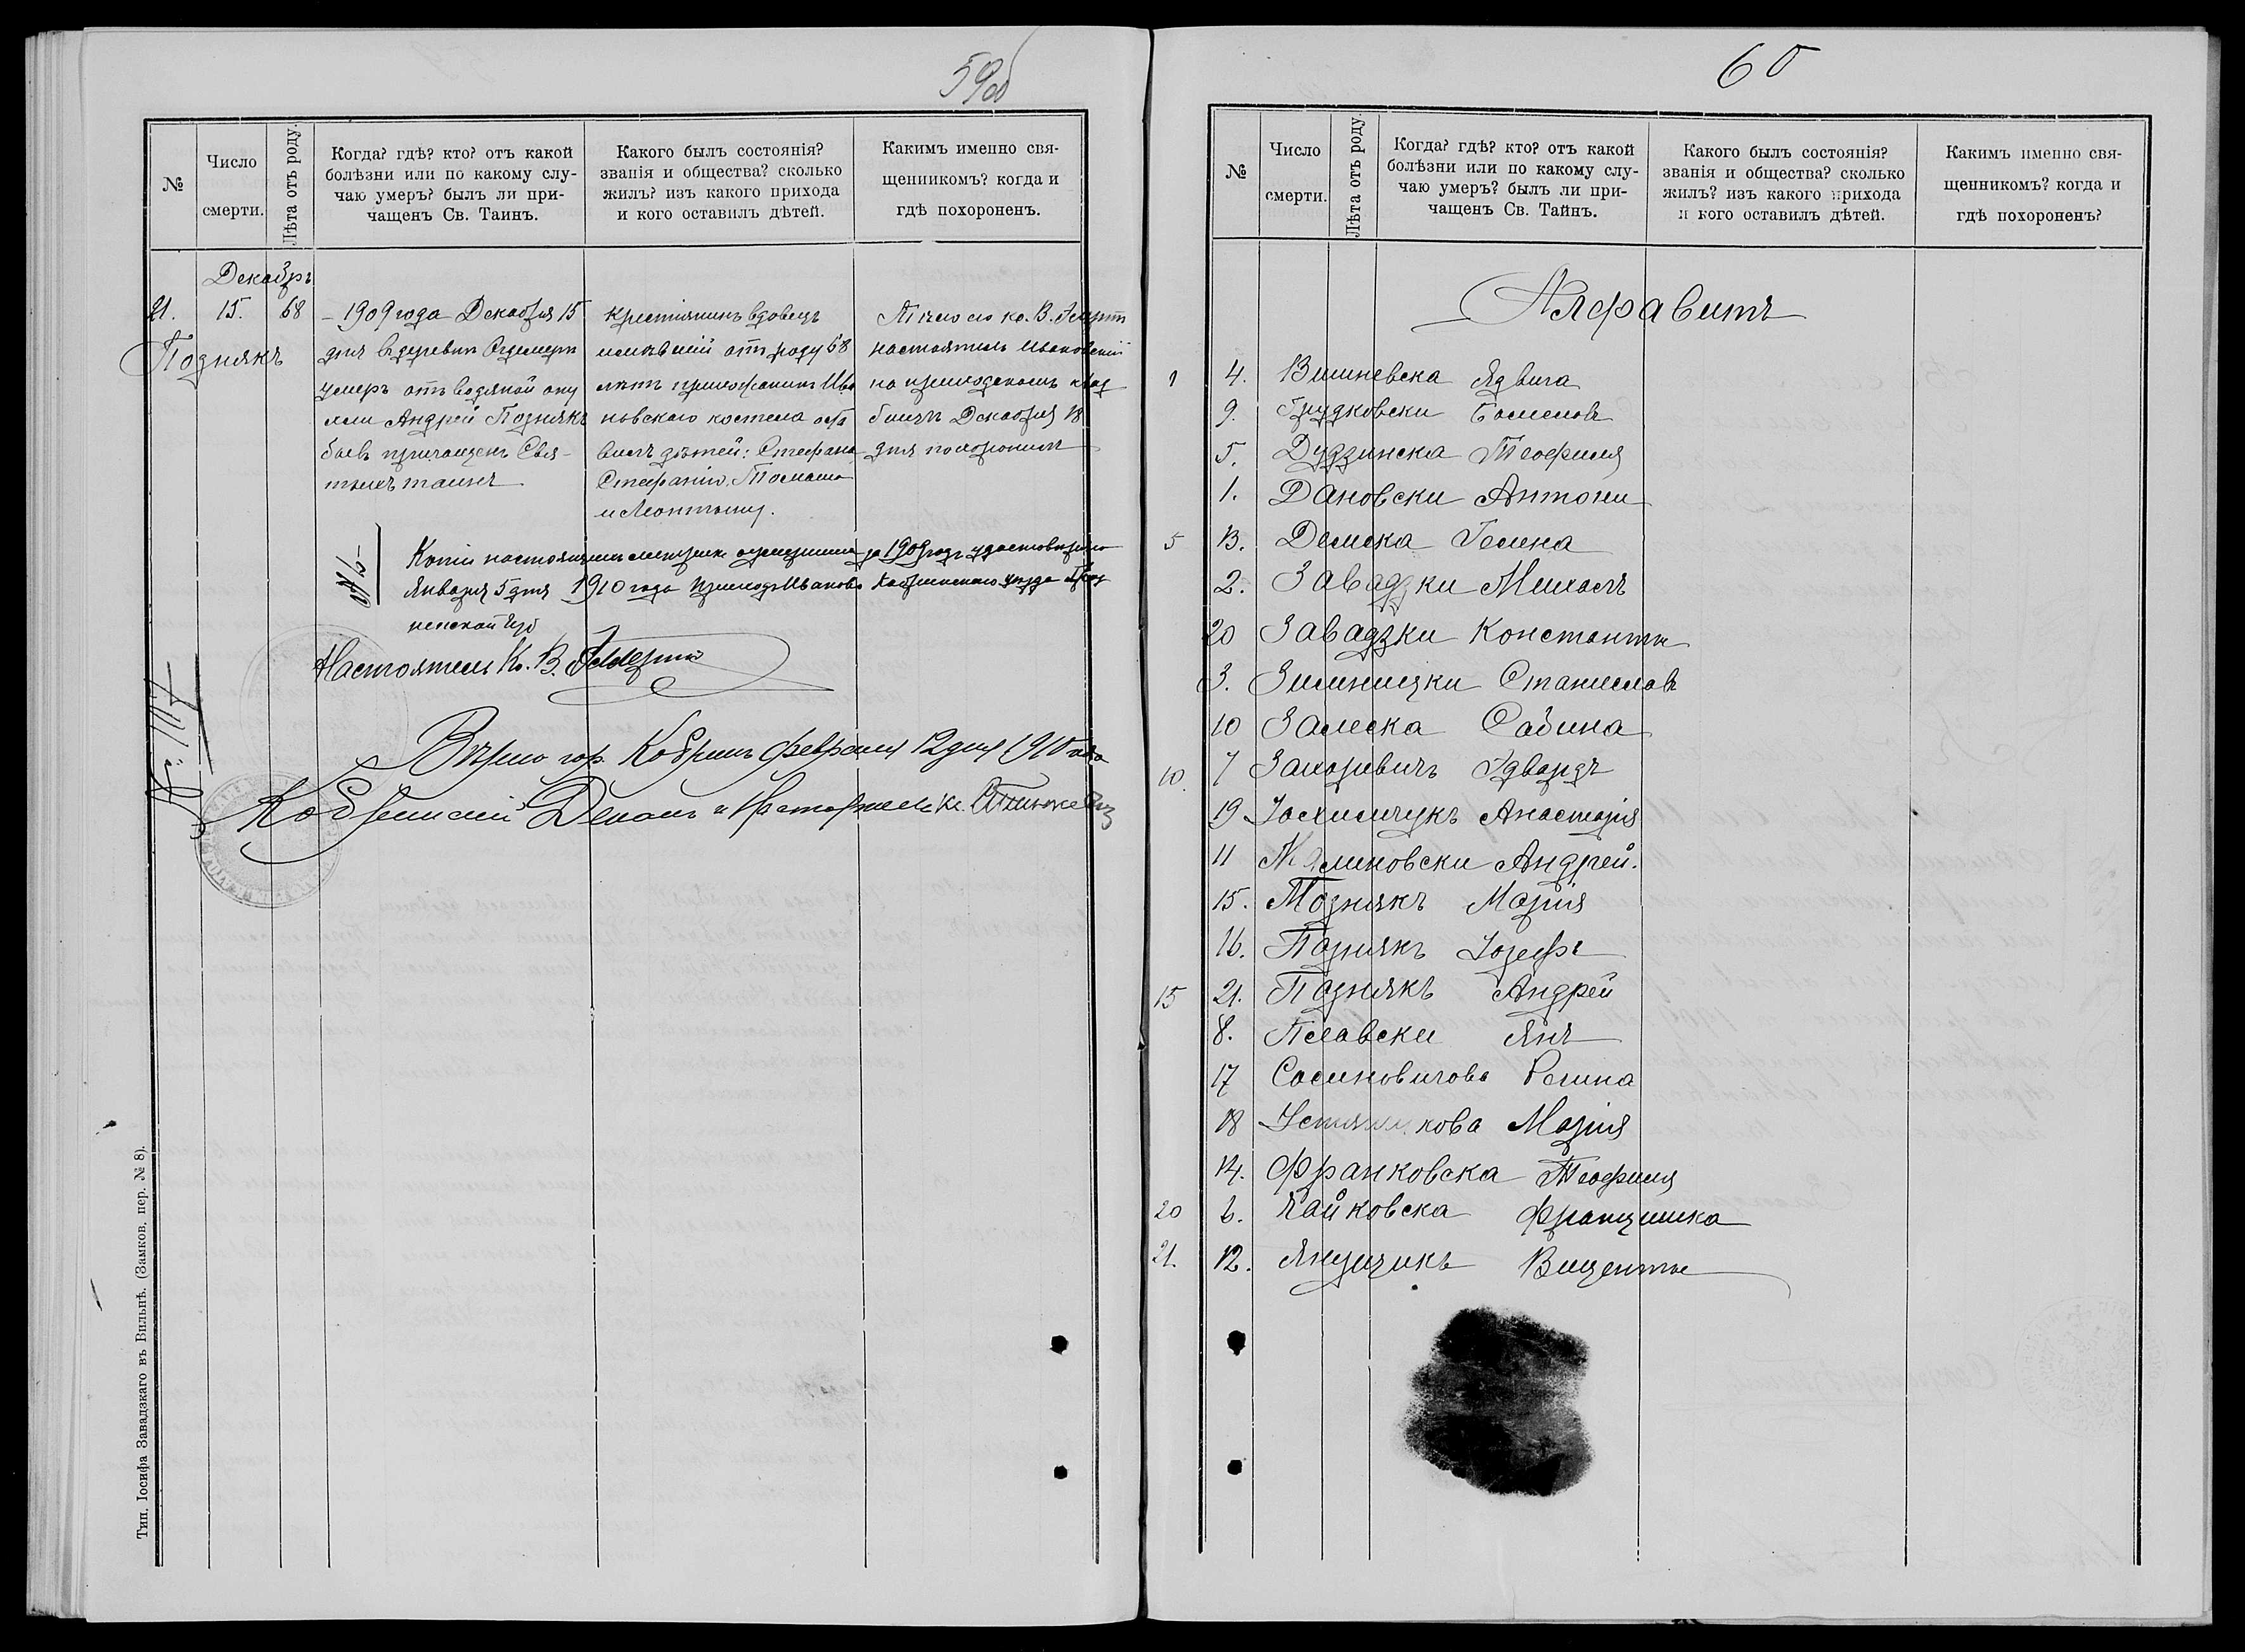 59об
№
Число
смерти.
Лѣта отъ роду.
Когда? гдѣ? кто? отъ какой
болѣзни или по какому слу-
чаю умеръ? былъ ли при-
чащенъ Св. Таинъ.
Какого былъ состоянія?
званія и общества? сколько
жилъ? изъ какого прихода
и кого оставилъ дѣтей.
Какимъ именно свя-
щенникомъ? когда и
гдѣ похороненъ.
Декабрь
21.
15.
68
Познякъ
1909 года Декабря 15
дня въ деревни Огдемеръ
умеръ отъ водяной опу
холи Андрей Познякъ
бывъ причащенъ Свя-
тыхъ таинъ
крестіянинъ вдовецъ
имѣвшій отъ роду 68
лѣтъ прихожанинъ Ива
новскаго костела оста
вилъ дѣтей: Стефана
Стефанію, Томаша
и Леонтыну.
Тѣло его кс. В.
настоятель Ивановскій
на приходскомъ клад
бищѣ Декабря 18
дня похоронилъ
Января 5 дня 1910 года Приходъ Иваново Кобринскаго уѣзда Грод
ненской губ
Настоятель Кс. В.
№ 117
Вѣрно гор. Кобринъ февраля 12 дня 1910 года
Кобринскій Деканъ и Настоятель кс.
Тип. Іосифа Завадзкаго въ Вильнѣ. (Замков. пер. № 8).
60
№
Число
смерти.
Лѣта отъ роду.
Когда? гдѣ? кто? отъ какой
болѣзни или по какому слу-
чаю умеръ? былъ ли при-
чащенъ Св. Тайнъ.
Какого былъ состоянія?
званія и общества? сколько
жилъ? изъ какого прихода
и кого оставилъ дѣтей.
Какимъ именно свя-
щенникомъ? когда и
гдѣ похороненъ?
Алфавитъ
1 4. Вишневска Ядвига
9. Грудковски Болеслов
5. Дудзинска Теофиля
1. Дановски Антони
5 13. Демска Гелена
2. Завадзки Михалъ
20 Завадзки Константы
3. Зилиницки Станиславъ
10 Залеска Сабина
10. 7 Захоревичъ Эдвардъ
19 Іоахимчукъ Анастазія
11 Малиновски Андрей.
15. Познякъ Марія
16. Познякъ Іозефъ
15 21. Познякъ Андрей
8. Пславски Янъ
17 Сосиновичова Регина
18 Марія
14. Франковска Теофиля
20 6. Чайковска Францишка
21. 12. Янущикъ Вицентые